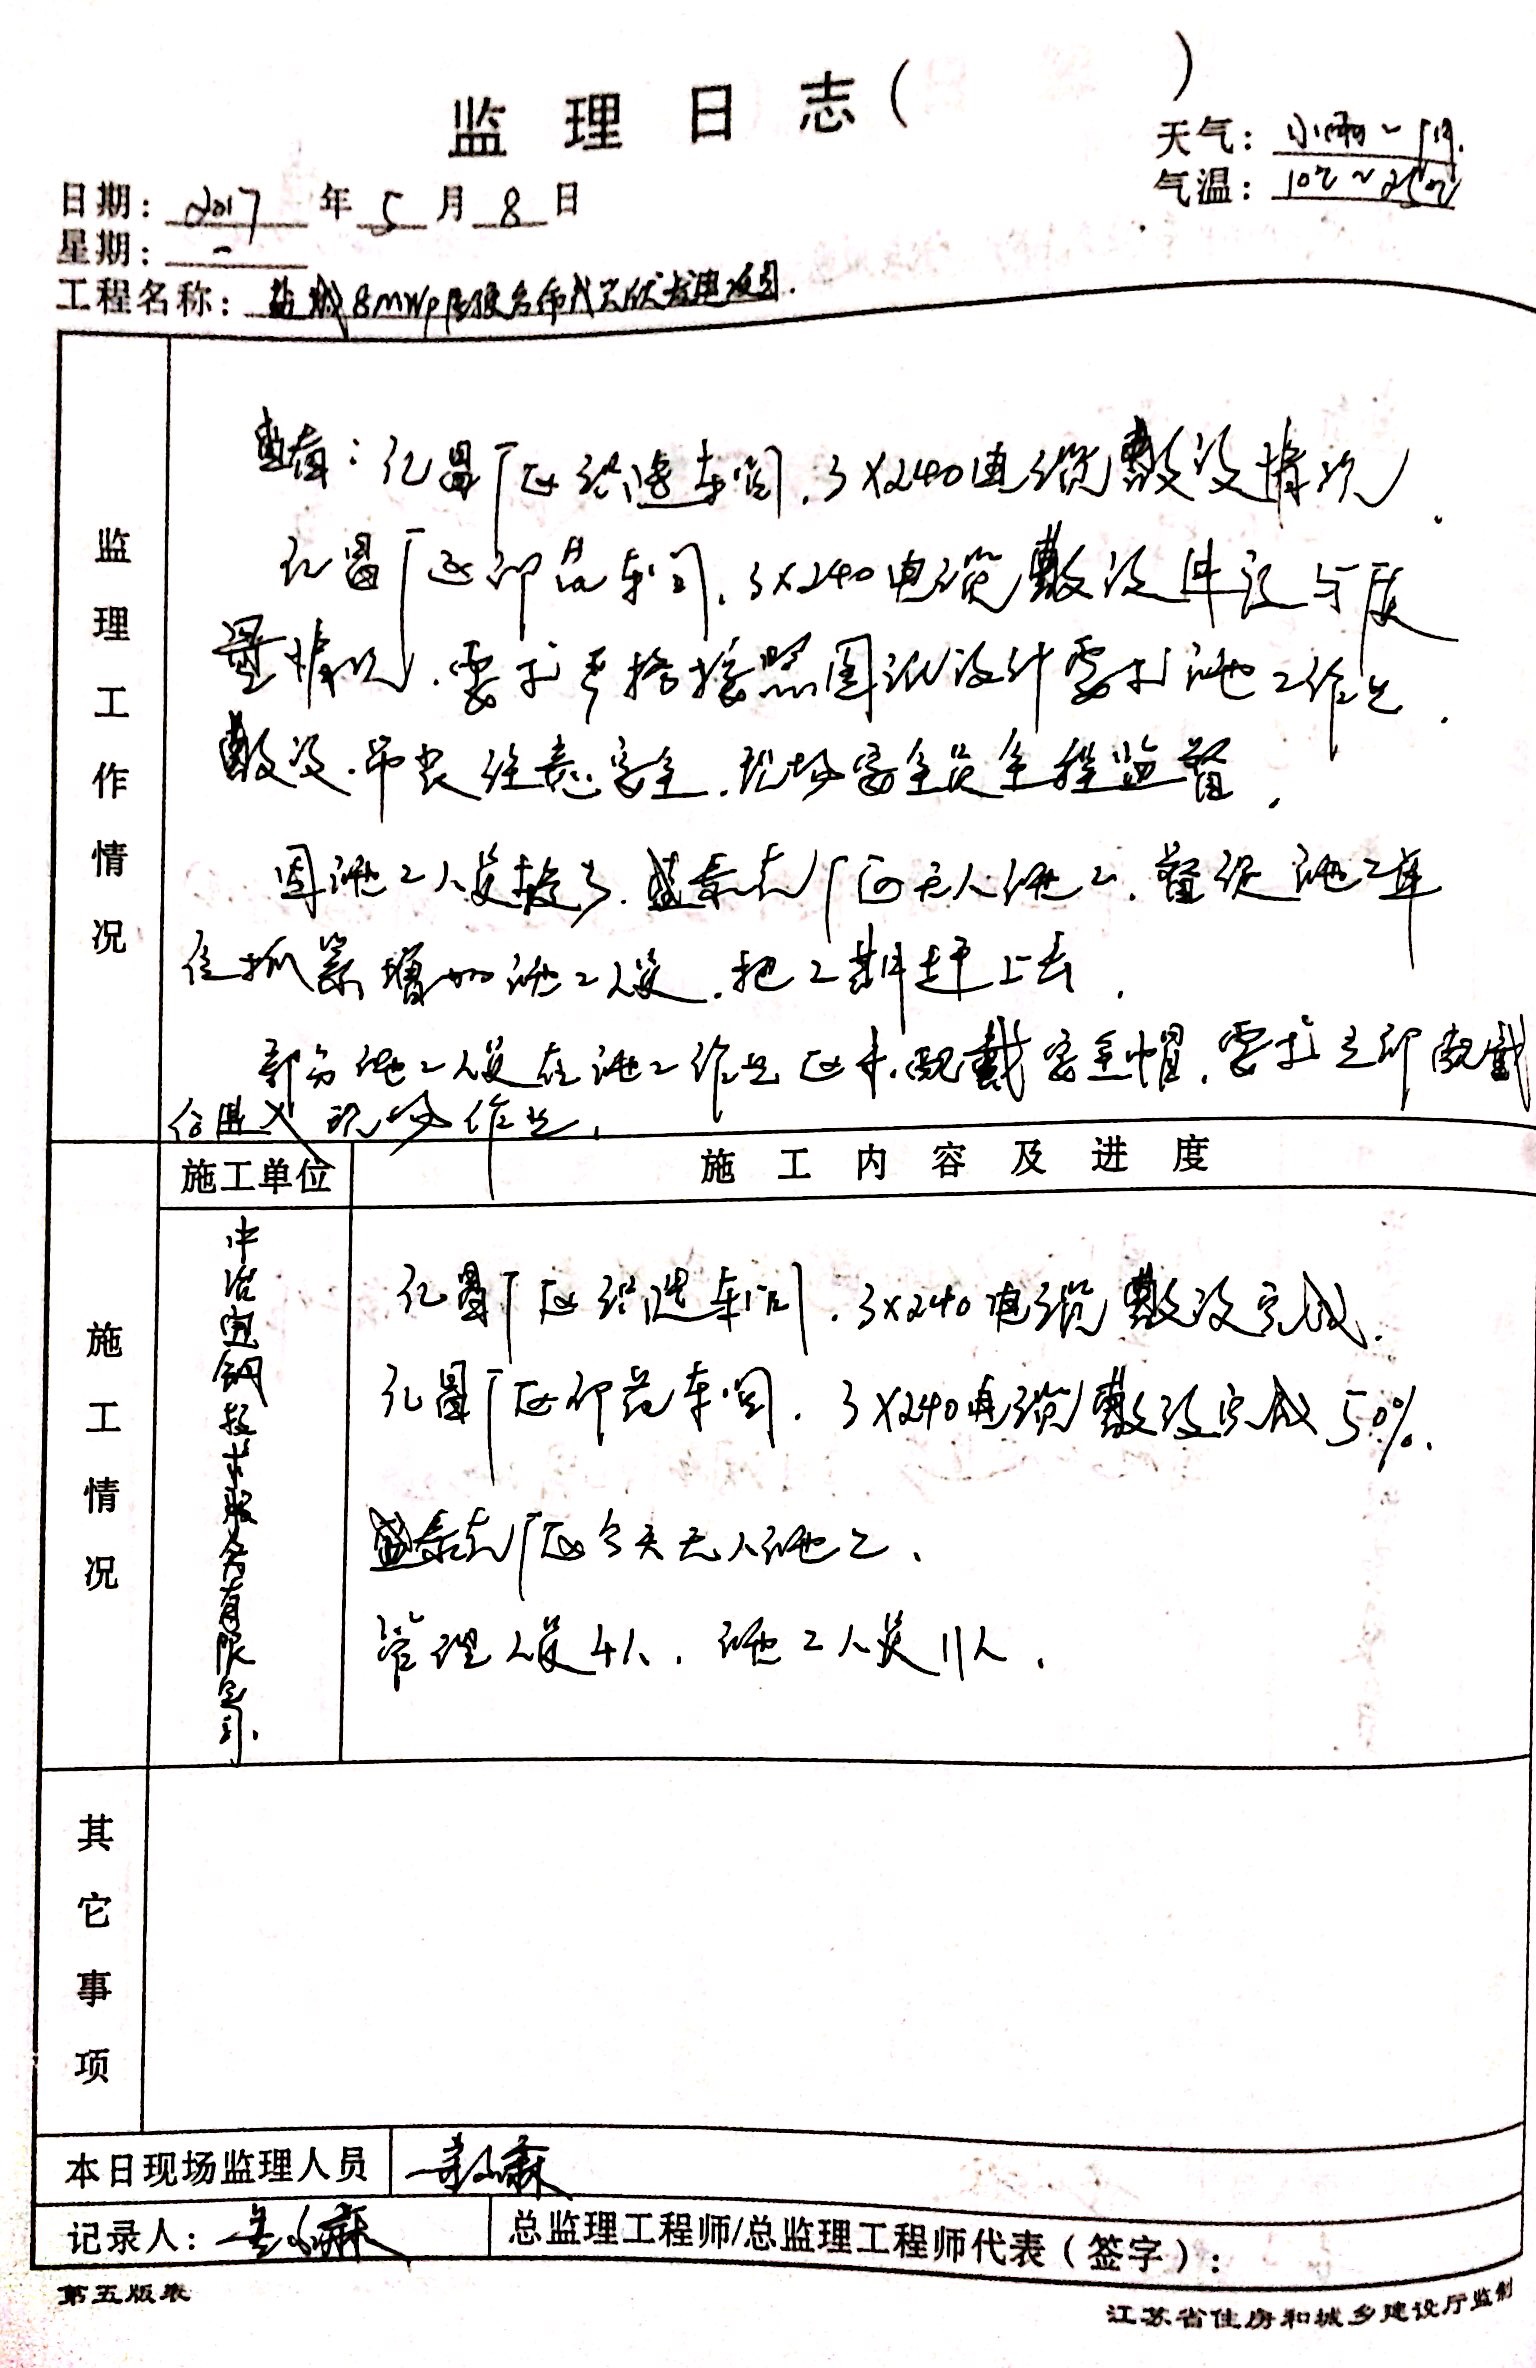 监理日志（ ）
天气：小雨～阴.
气温：10℃～25℃
日期：2017年5月8日
星期：一
工程名称：盐城8MWp屋顶分布式光伏发电项目.
监理工作情况
查看：亿昌厂区织造车间.3X240电缆敷设情况.
亿昌厂区印花车间.3X240电缆敷设 与质
量情况.要求严格按照图纸设计要求施工作业.
敷设.吊装注意安全.现场安全员全程监督.
因施工人员较少.盛泰克厂区无人施工.督促施工单
位抓紧增加施工人员.把工期赶上去.
部分施工人员在施工作业区未配戴安全帽.要求立即配戴
后进入现场作业.
施工单位
施工内容及进度
施工情况
中冶宝钢技术服务有限公司.
亿昌厂区织造车间.3X240电缆敷设完成.
亿昌厂区印花车间.3X240电缆敷设完成50%.
盛泰克厂区今天无人施工.
管理人员4人.施工人员11人.
其它事项
本日现场监理人员
记录人：
总监理工程师/总监理工程师代表（签字）：
第五版表
江苏省住房和城乡建设厅监制